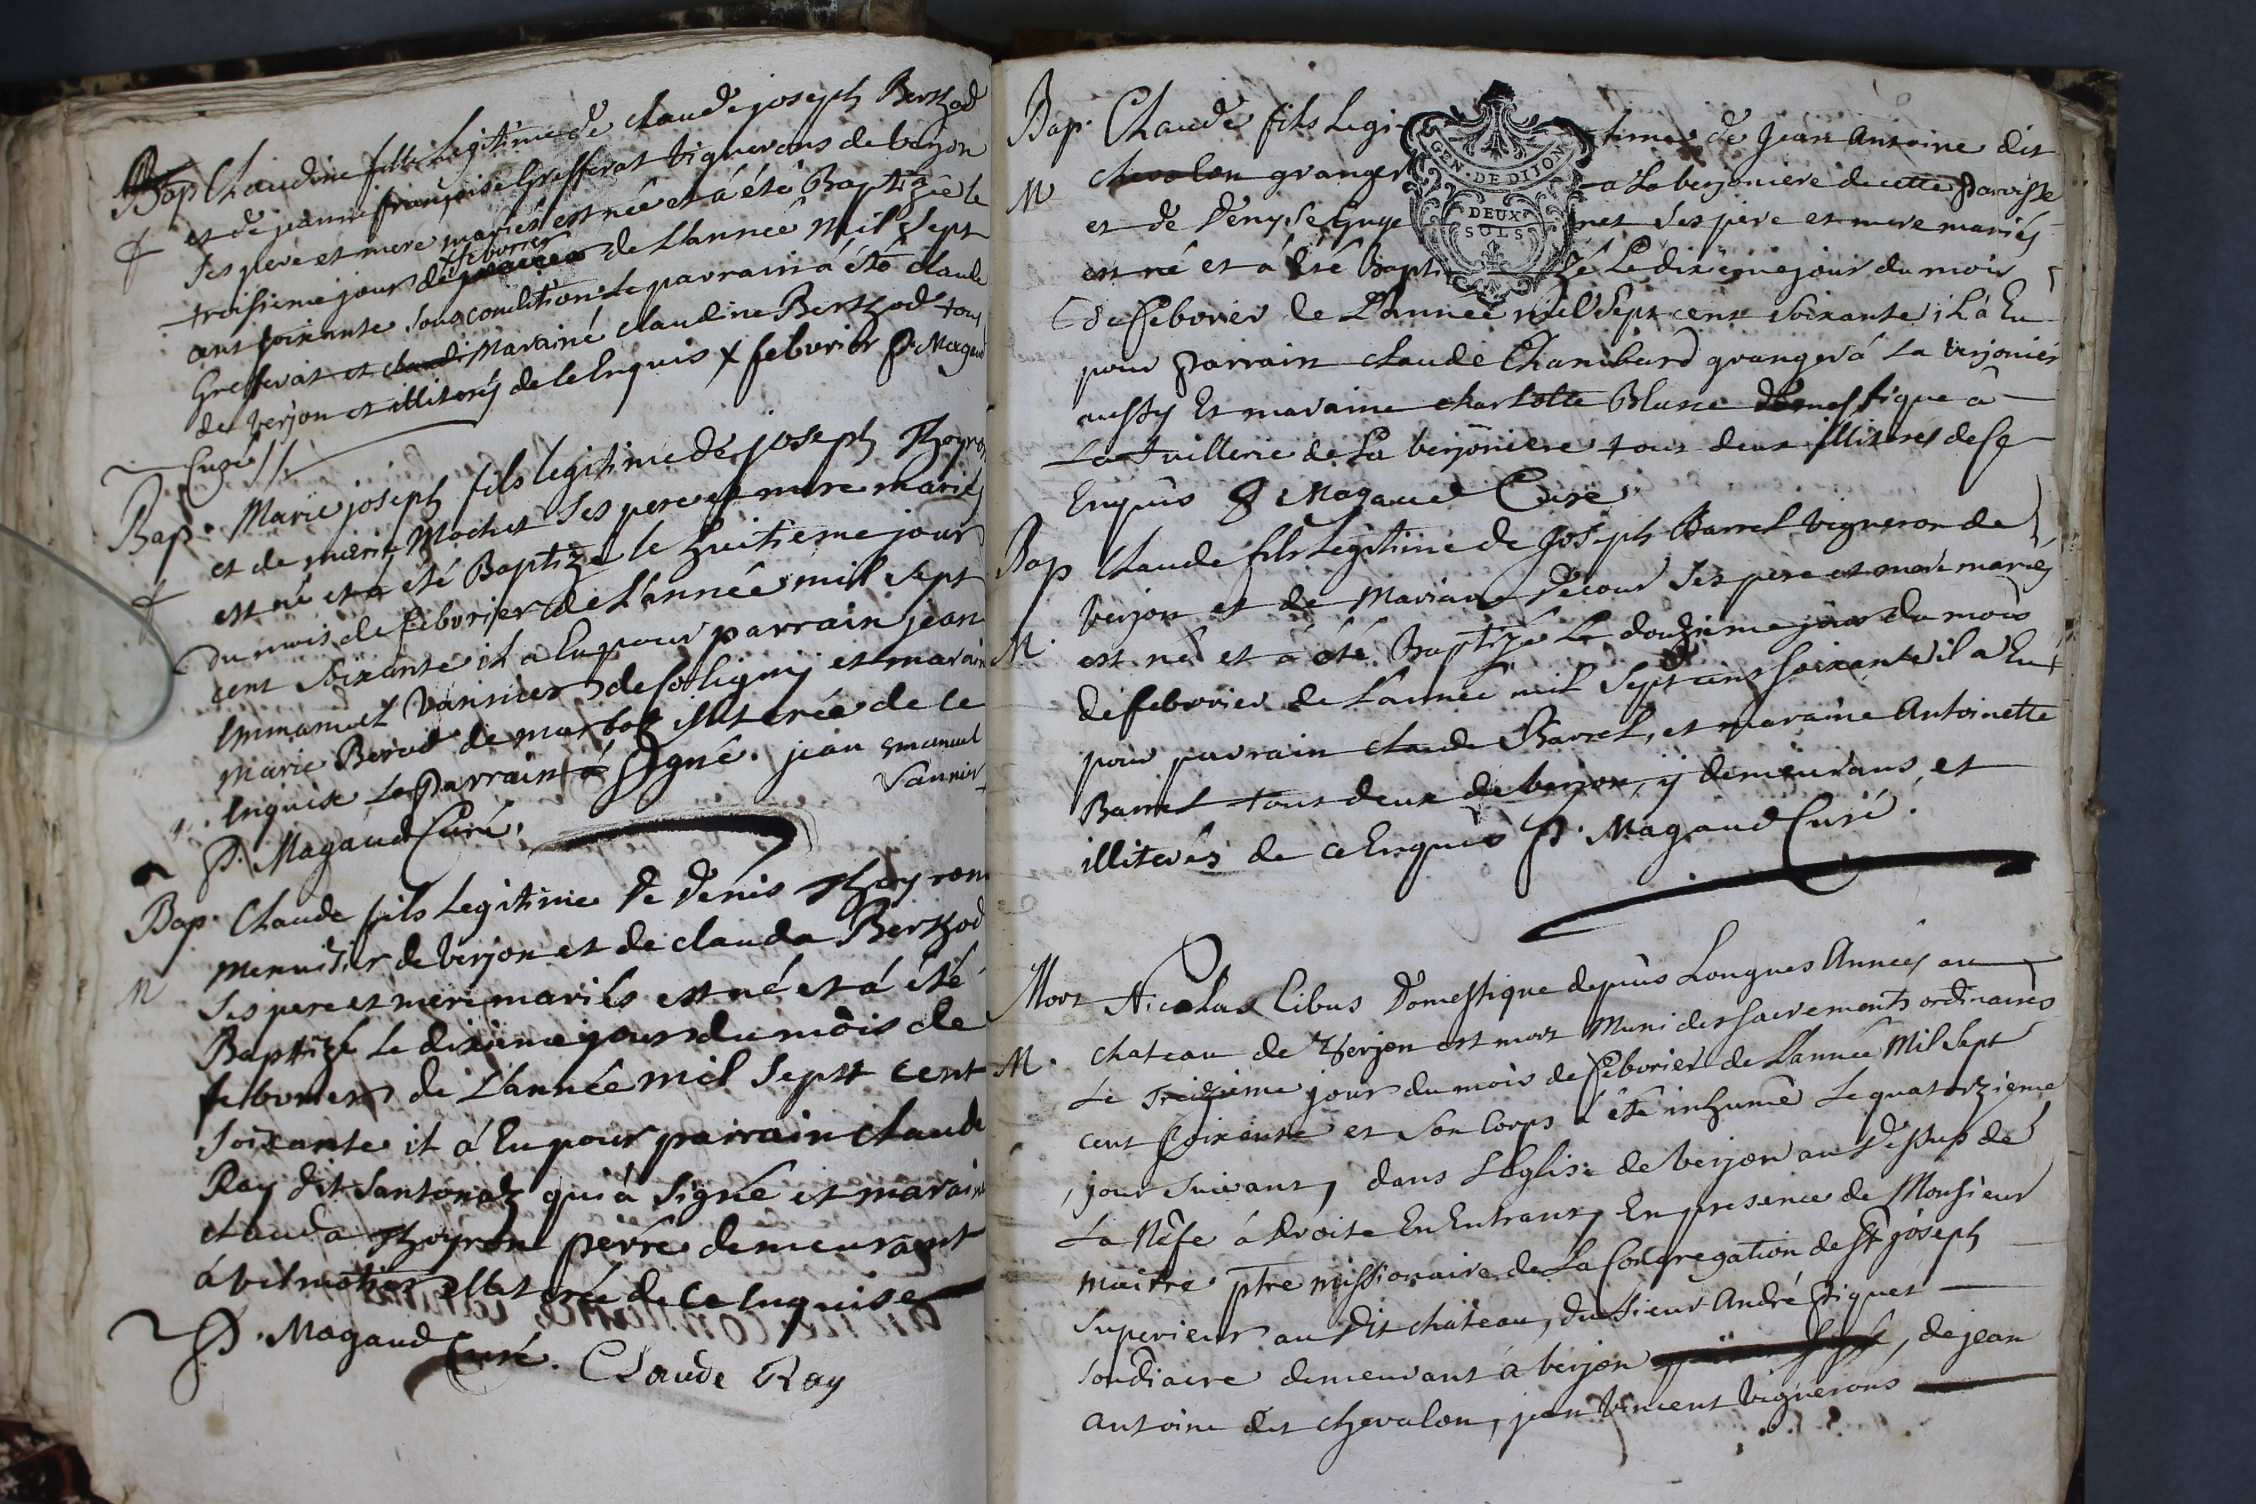 Bap Claudine fille Legitime de claude joseph Berthod
et de jeanne françoise Gresserat vignerons de verjon
ses pere et mere mariés est née et á été Baptizée le
xfebvrier
troisieme jour de de L'année Mil Sept
cent soixante sous condition Le parrain á été claude
Gresserat et claudi Maraine claudine Berthod tous
de verjon et illiterés de ce Enquis x febvrier P. Magaud
Curé //.
Bap. Marie joseph fils legitime de joseph Thoyron
et de marie Mochet ses pere et mere mariés
est né et a été Baptizé le huitieme jour
du mois de febvrier de L'année mil sept
cent soixante il a Eu pour parrain jean
Emmanuel Vannier de Coligny et marain
marie Berod de marboz illiterée de ce
Enquise Le parrain á signé. jean emanuel
Vannier
P. Magaud Curé.
Bap. Claude fils Legitime de denis Thoyron
M
menuisier de verjon et de clauda Berthod
ses pere et mere mariés est né et á été
Baptizé Le dixieme jour du mois de
febvrier de L'année mil Sept cent
soixante il á Eu pour parrain claude
Ray dit Santonaz qui á signé et marain
clauda Thoyron demeurant
á illiterée de ce Enquise
P. Magaud Curé. Claude Ray
GEN. DE DIJON
DEUX
SOLS
Bap. Claude fils Legi- time de Jean Antoine dit
M
chevalon granger a La verjoniere de cette parroisse
et de denyse Guye net ses pere et mere mariés
est né et á été Bapti zé Le dixieme jour du mois
de febvrier de L'Année mil Sept cent soixante il á Eu
pour parrain claude Chambard granger á La verjonier
aussy Et maraine charlotte Blanc domestique á
La tuillerie de La verjoniere tous deux illiterés de ce
Enquis P Magaud Curé
Bap Claude fils Legitime de Joseph Barrel vigneron de
verjon et de Mariane decour ses pere et mere mariés
M.
est né et a été Baptizé Le douzieme jour du mois
de febvrier de L'année mil Sept cens soixante il a Eu
pour parrain claude Barrel, et maraine Antoinette
Barrel tous deux de verjon, y demeurans, et
illiterés de ce Enquis P. Magaud Curé.
Mort Nicolas Cibus Domestique depuis Longues Années au
chateau de Verjon est mort Muni des sacrements ordinaires
M.
Le treizieme jour du mois de febvrier de L'année Mil Sept
cent soixante et son Corps á été inhumé Le quatorzieme
jour suivant, dans L'Eglise de verjon au dessus de
La Nefe á droite En Entrant, En presence de Monsieur
maitre ptre missionaire de La Congregation de St joseph
superieur au dit chateau, du sieur André Piquet
soudiacre demeurant á verjon , de jean
antoine dit chevalon, jean vincent vignerons